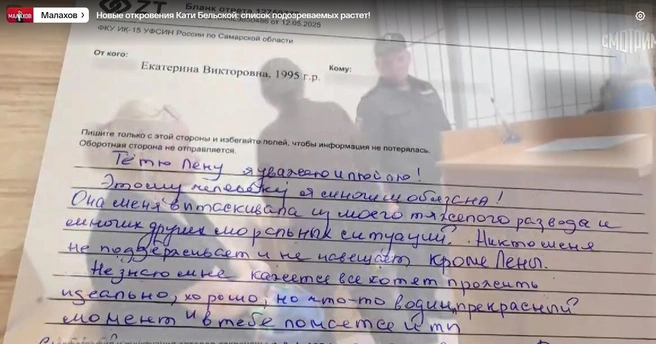 МАЛАХОВ Малахов > Новые откровения Кати Бельской: список подозреваемых растет!
СМОТРИМ
ZT Бланк ответа
во до 12.05.2025
ФКУ ИК-15 УФСИН России по Самарской области
От кого: Кому:
Екатерина Викторовна, 1995 г.р.
Пишите только с этой стороны и избегайте полей, чтобы информация не потерялась.
Оборотная сторона не отправляется.
Тётю Лену я уважаю и люблю!
Этому человеку я многим обязана!
Она меня вытаскивала из моего тяжелого развода и
многих других моральных ситуаций. Никто меня
не поддерживает и не навещает кроме Лены.
Не знаю мне кажется все хотят прожить
идеально, хорошо, но что-то в один прекрасный
момент и в тебе ломается и тп